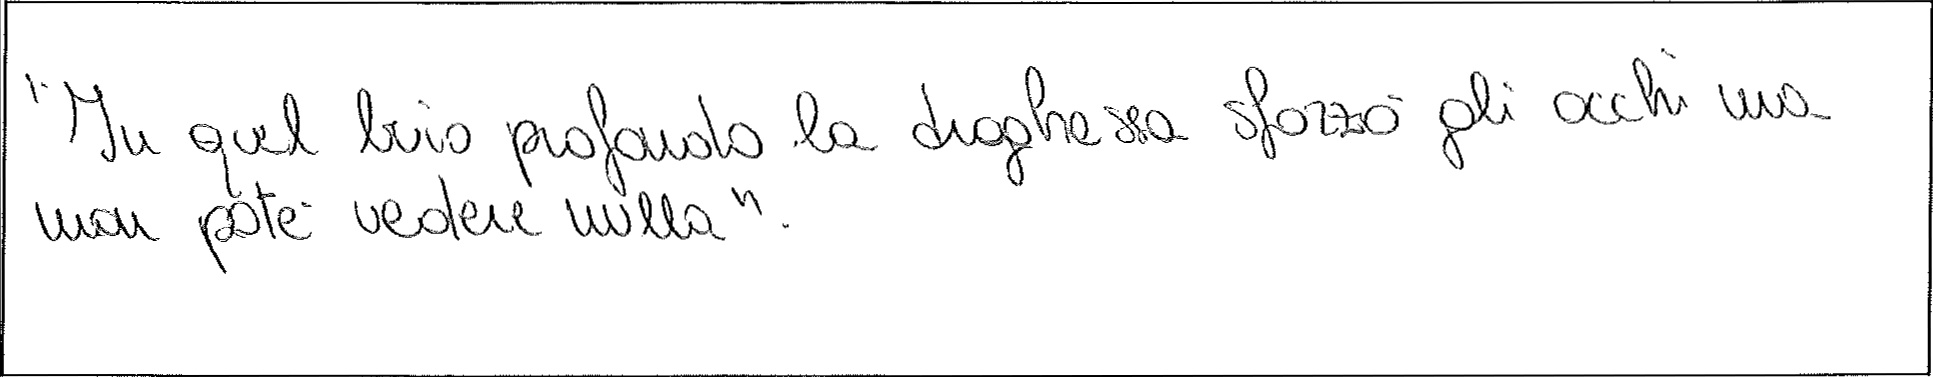 "In quel buio profondo la draghessa sfozzò gli occhi ma
non potè vedere nulla".